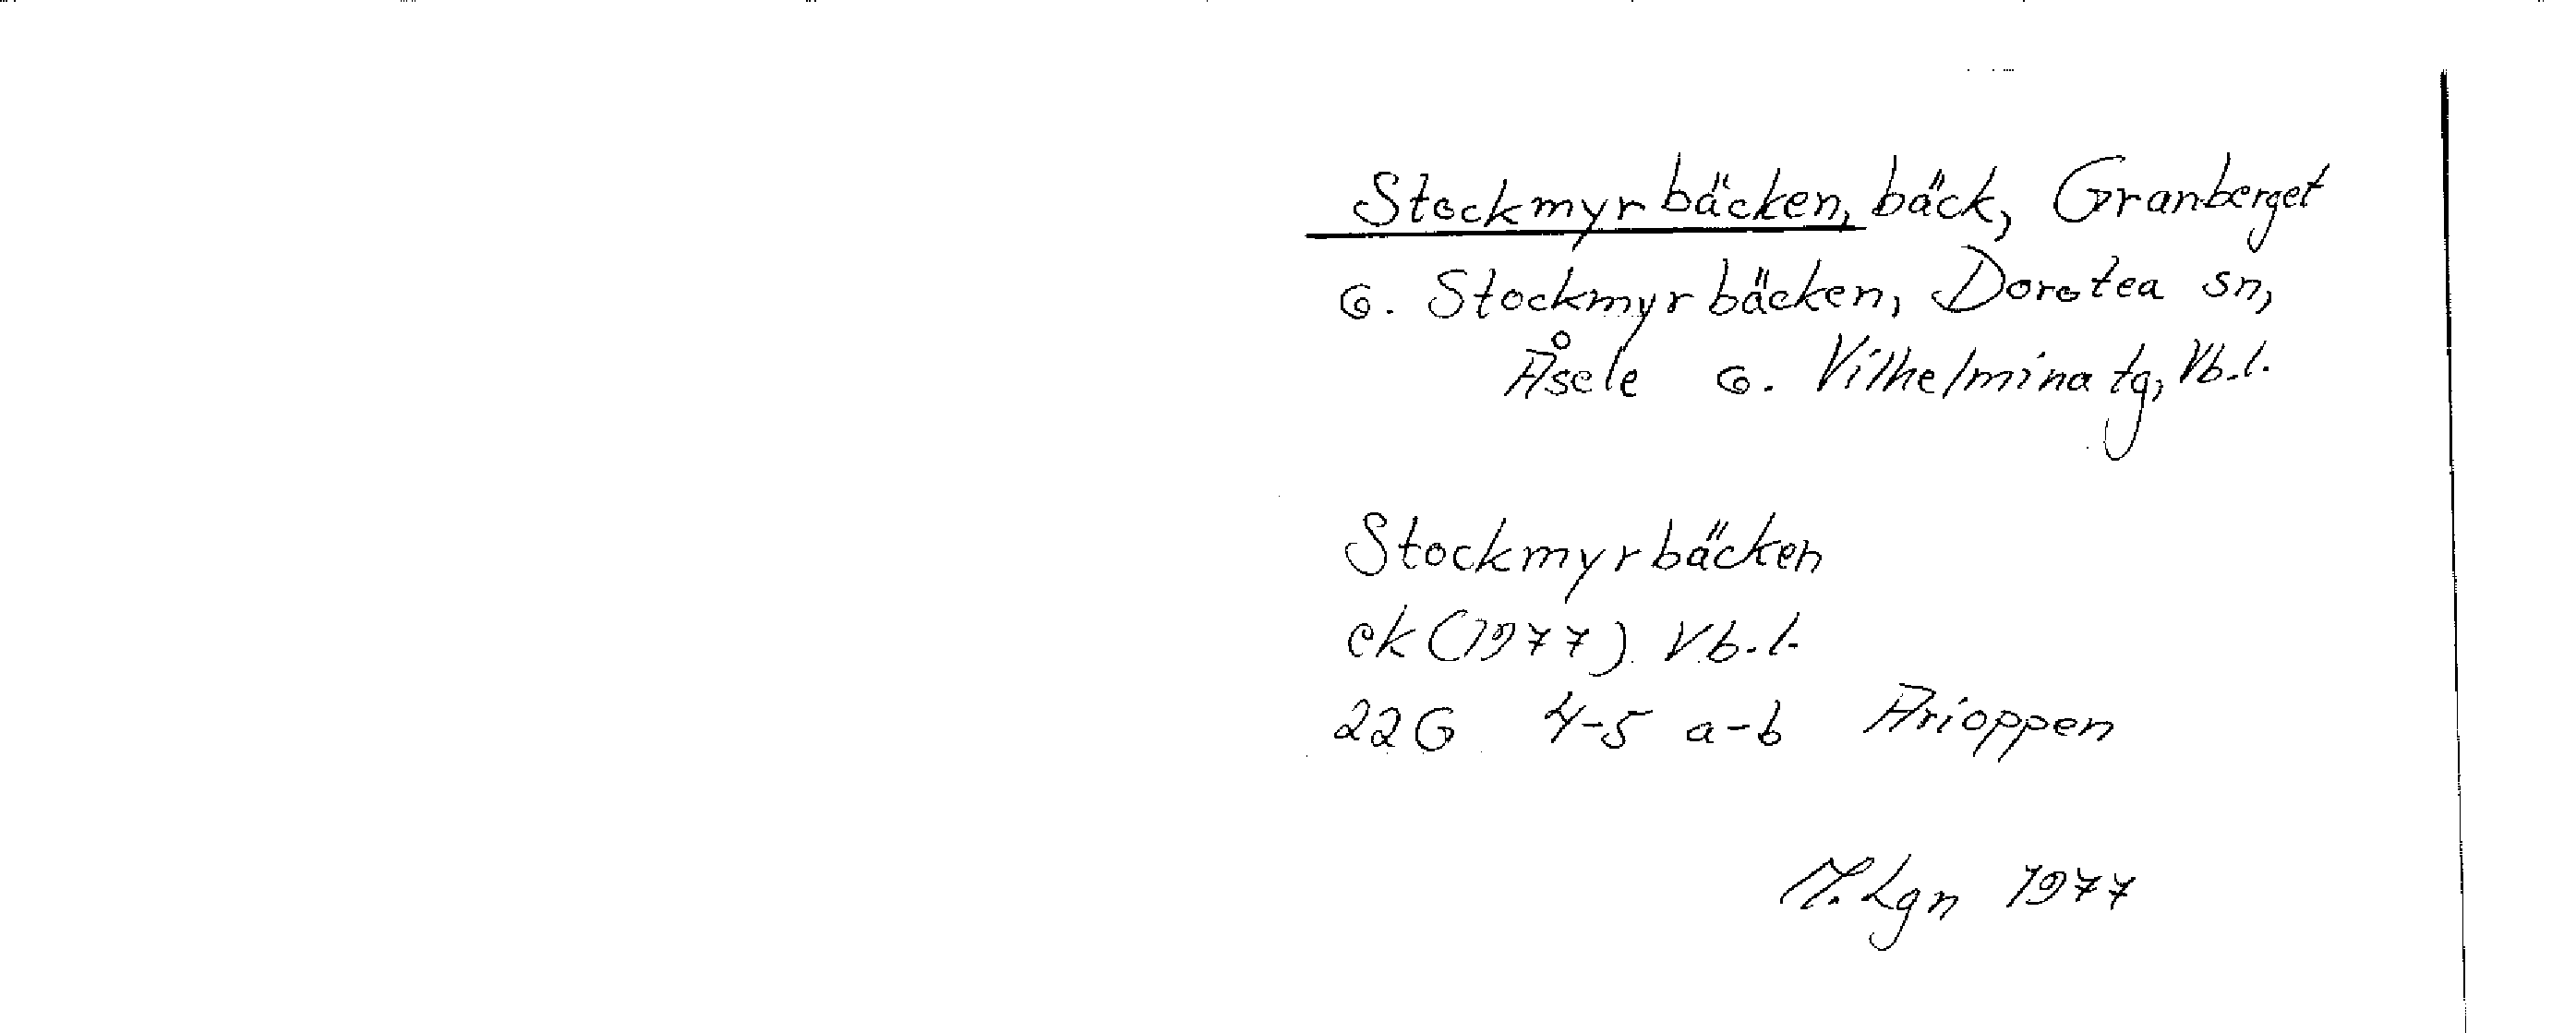 Stockmyrbäcken, bäck, Granberget
o. Stockmyrbäcken, Dorotea sn,
Åsele o. Vilhelmina tg, Vb.l.
Stockmyrbäcken
ek (1977) Vb.l.
22G 4-5 a-b Arioppen
M. Lgn 1977